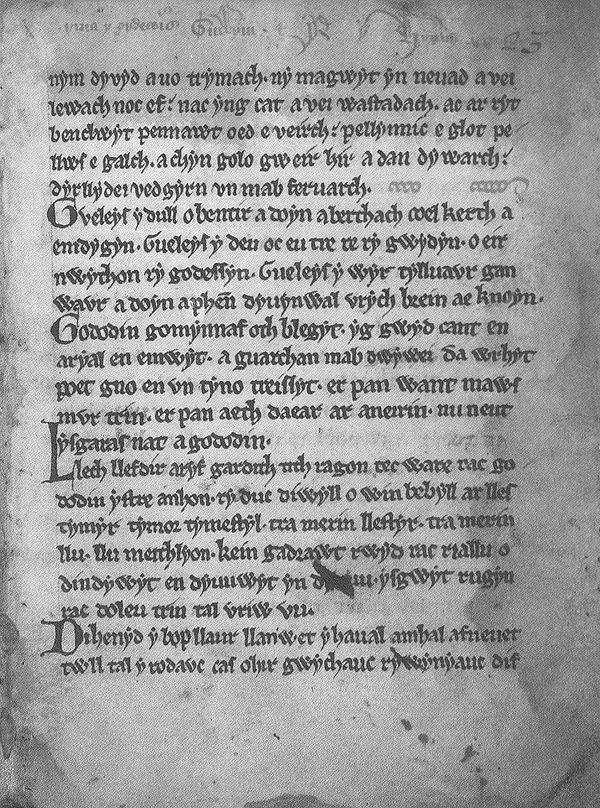 25
nym dyvyd a uo trymach. ny magwyt yn neuad a vei
lewach noc ef. nac yng cat a vei wastadach. ac ar ryt
benclwyt pennawt oed e veirch. pellynnic e glot pe
llws e galch. a chyn golo gweir hir a dan dywarch.
dyrllydei vedgyrn vn mab feruarch.
Gveleys y dull o bentir a doyn aberthach coel kerth a
emdygyn. Gueleys y deu oc eu tre re ry gwydyn. o eir
nwython ry godessyn. Gueleys y wyr tylluavr gan
wavr a doyn a phen̄ dyuynwal vrych brein ae knoyn.
Gododin gomynnaf oth blegyt. yg gwyd cant en
aryal en emwyt. a guarchan mab dwywei da wrhyt
poet gno en vn tyno treissyt. er pan want maws
mvr trin. er pan aeth daear ar aneirin. nu neut
ysgaras nat a gododin.
Llech llefdir aryf gardith tith ragon tec ware rac go
dodin ystre anhon. ry duc diwyll o win bebyll ar lles
tymyr tymor tymestyl. tra merin llestyr. tra merin
llu. llu meithlyon. kein gadrawt rwyd rac riallu o
dindywyt en dyuuwyt yn ysgwyt rugyn
rac doleu trin tal vriw vu.
Dihenyd y bop llaur llanwet y haual amhal afneuet
twll tal y rodavc cas ohir gwychauc rywynyauc dif